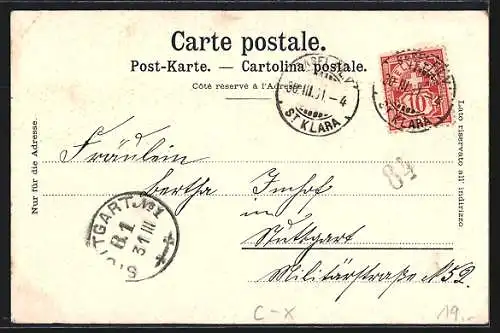 Carte postale.
Post-Karte. — Cartolina postale.
Côté réservé à l'Adresse.
Nur für die Adresse.
Lato riservato all' indirizzo
30 III.01.–4
ST KLARA
10
ST KLARA
84
Fräulein
Bertha Imhof
in
Stuttgart
Militärstraße N52.
STUTTGART. No 1
81
31 III
C-X
19.-